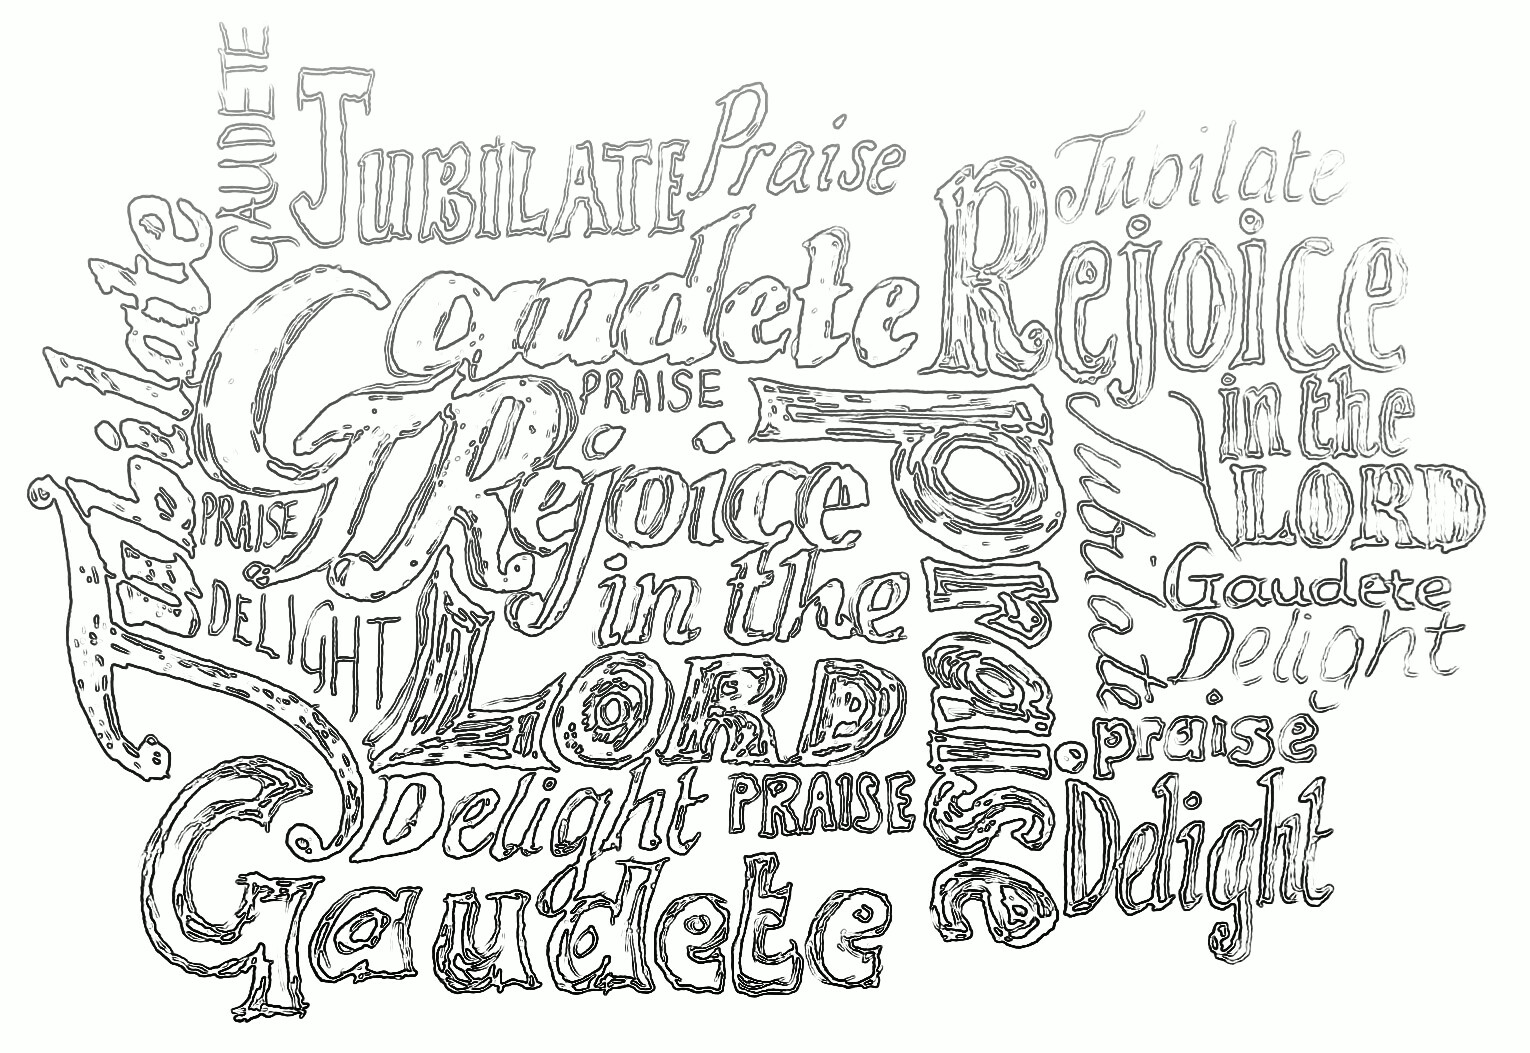 GAUDETE
JUBILATE
Praise
Jubilate
Jubilate
Gaudete
Rejoice
in the
LORD
PRAISE
Rejoice
in the
LORD
praise
PRAISE
DELIGHT
Gaudete
Delight
praise
Delight
PRAISE
Delight
Gaudete